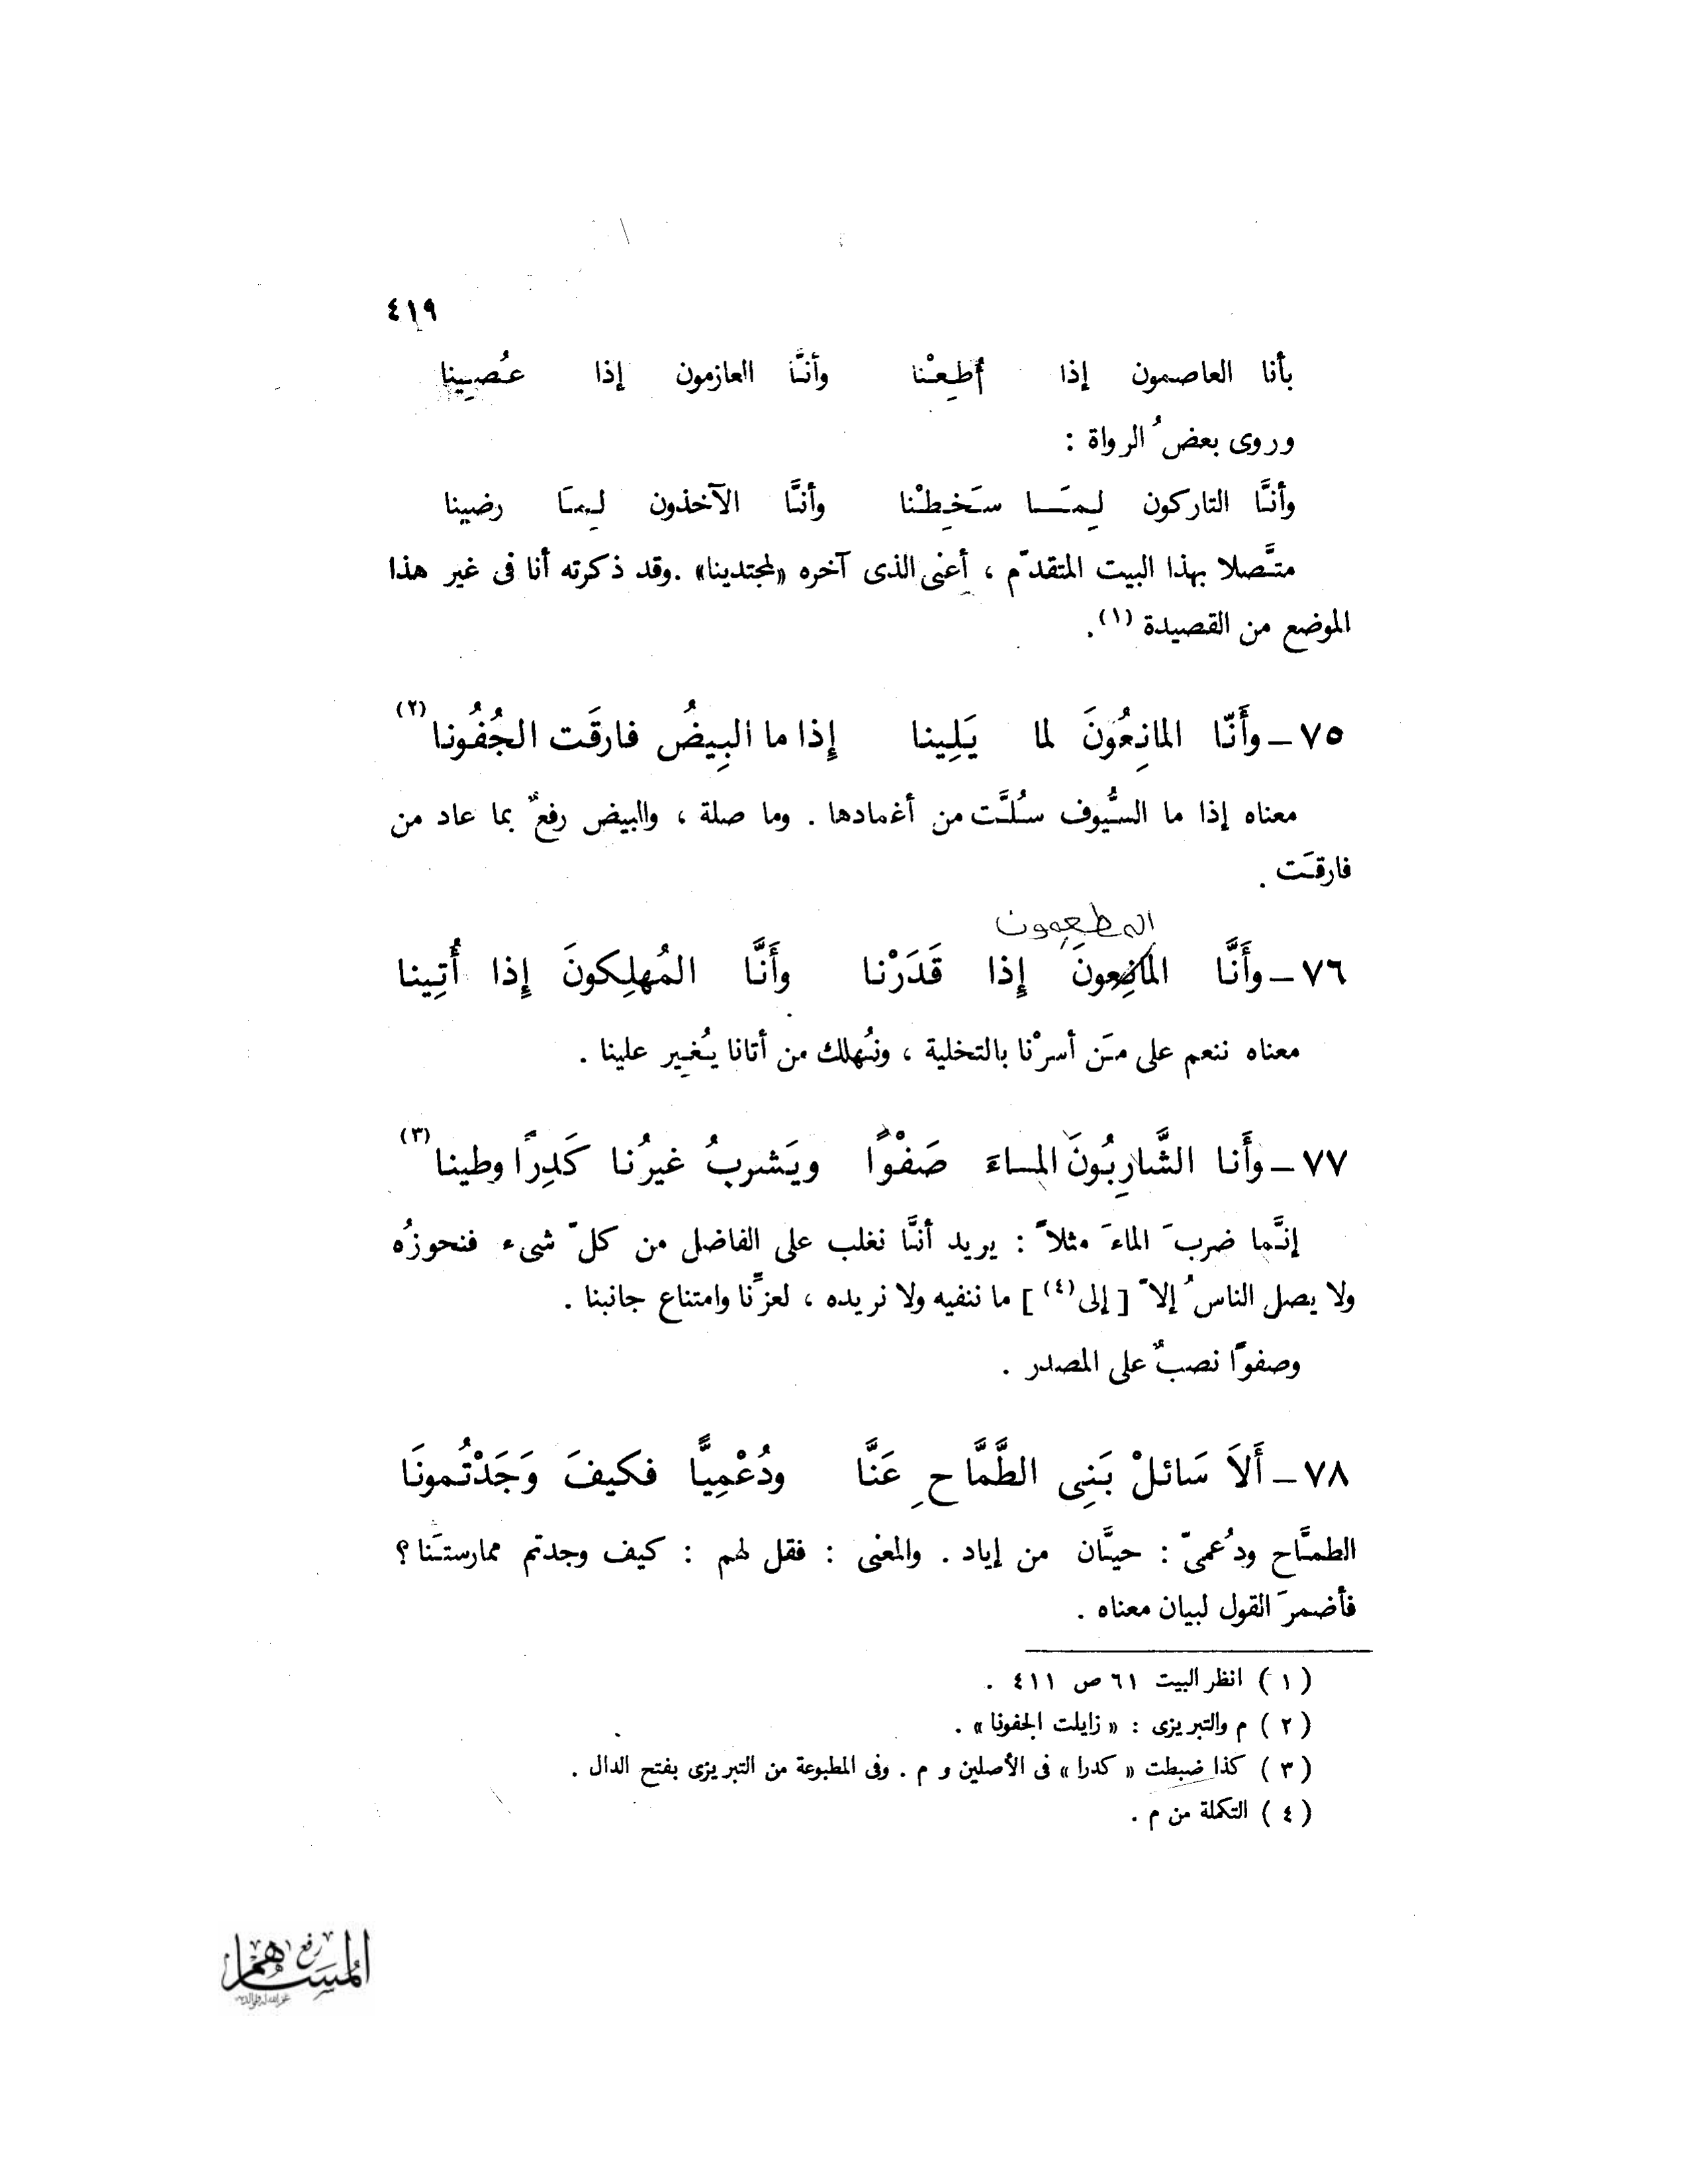 ٤١٩
بأنا العاصمون إذا أُطِعْنا وأنَّا العازمون إذا عُصِينا
وروى بعضُ الرواة :
وأنَّا التاركون لِمَا سَخِطْنا وأنَّا الآخذون لِمَا رضينا
متَّصلا بهذا البيت المتقدّم ، أعنى الذى آخره «لمجتدينا» . وقد ذكرته أنا فى غير هذا
الموضع من القصيدة (١).
٧٥ – وأَنّا المانِعُونَ لما يَلِينا إِذا ما البِيضُ فارقَت الجُفُونا (٢)
معناه إذا ما السُّيوف سُلَّت من أغمادها . وما صلة ، والبيض رفعٌ بما عاد من
فارقَت .
المطعمون
٧٦ – وأَنَّا المانِعونَ إِذا قَدَرْنا وأَنَّا المُهلِكونَ إِذا أُتِينا
معناه ننعم على مَن أسرْنا بالتخلية ، ونُهلك من أتانا يُغير علينا .
٧٧ – وأَنا الشَّارِبُونَ الماءَ صَفْوًا ويَشربُ غيرُنا كَدِرًا وطينا (٣)
إنَّما ضربَ الماءَ مثلاً : يريد أنَّا نغلب على الفاضل من كلّ شىء فنحوزُه
ولا يصل الناسُ إلاّ [ إلى (٤) ] ما ننفيه ولا نريده ، لعزِّنا وامتناع جانبنا .
وصفوًا نصبٌ على المصدر .
٧٨ – أَلاَ سَائلْ بَنِى الطَّمَّاحِ عَنَّا ودُعْمِيًّا فكيفَ وَجَدْتُمونَا
الطمَّاح ودُعمىّ : حيَّان من إياد . والمعنى : فقل لهم : كيف وجدتم ممارستَنا ؟
فأضمرَ القول لبيان معناه .
( ١ ) انظر البيت ٦١ ص ٤١١ .
( ٢ ) م والتبريزى : « زايلت الجفونا » .
( ٣ ) كذا ضبطت « كدرا » فى الأصلين و م . وفى المطبوعة من التبريزى بفتح الدال .
( ٤ ) التكملة من م .
رفع
المساهم